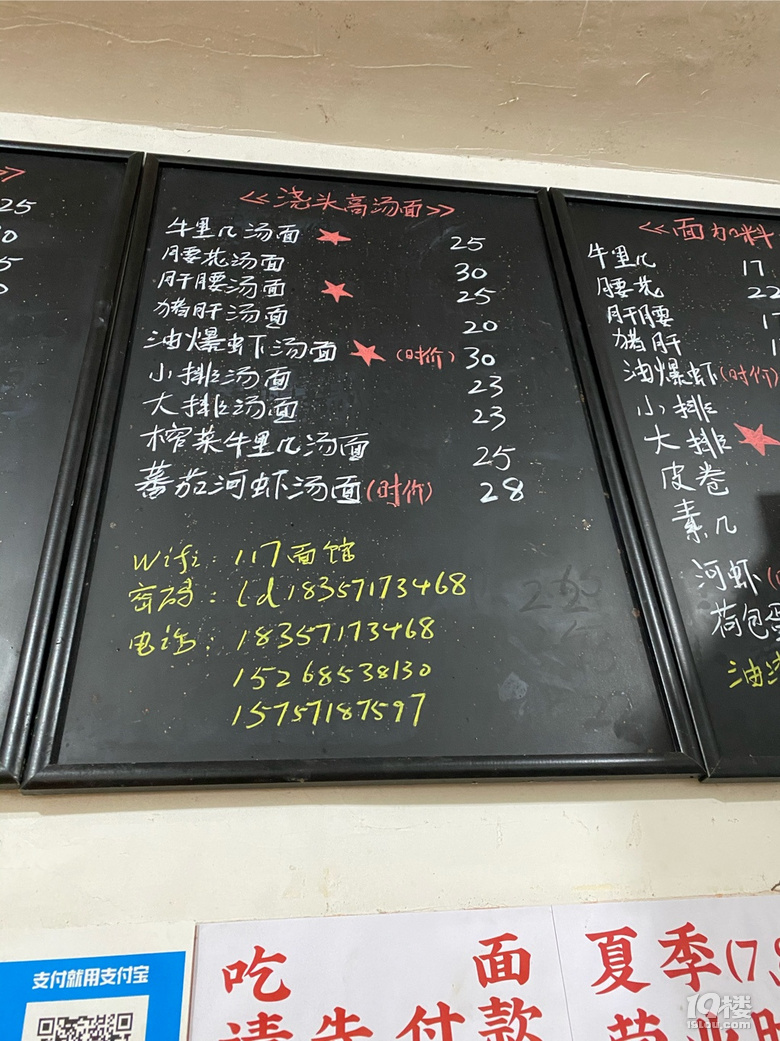 25
<<浇头高汤面>>
牛里几汤面 ★ 25
腰花汤面 30
肝腰汤面 ★ 25
猪肝汤面 20
油爆虾汤面 ★ (时价) 30
小排汤面 23
大排汤面 23
榨菜牛里几汤面 25
蕃茄河虾汤面(时价) 28
Wifi: 117面馆
密码: ld18357173468
电话: 18357173468
15268538130
15757187597
<<面加料
牛里几 17
腰花 22
肝腰
猪肝
油爆虾(时价)
小排
大排 ★
皮卷
素几
河虾
荷包蛋
支付就用支付宝
吃 面
请先付款
夏季(7,8
营业时
19楼
19lou.com